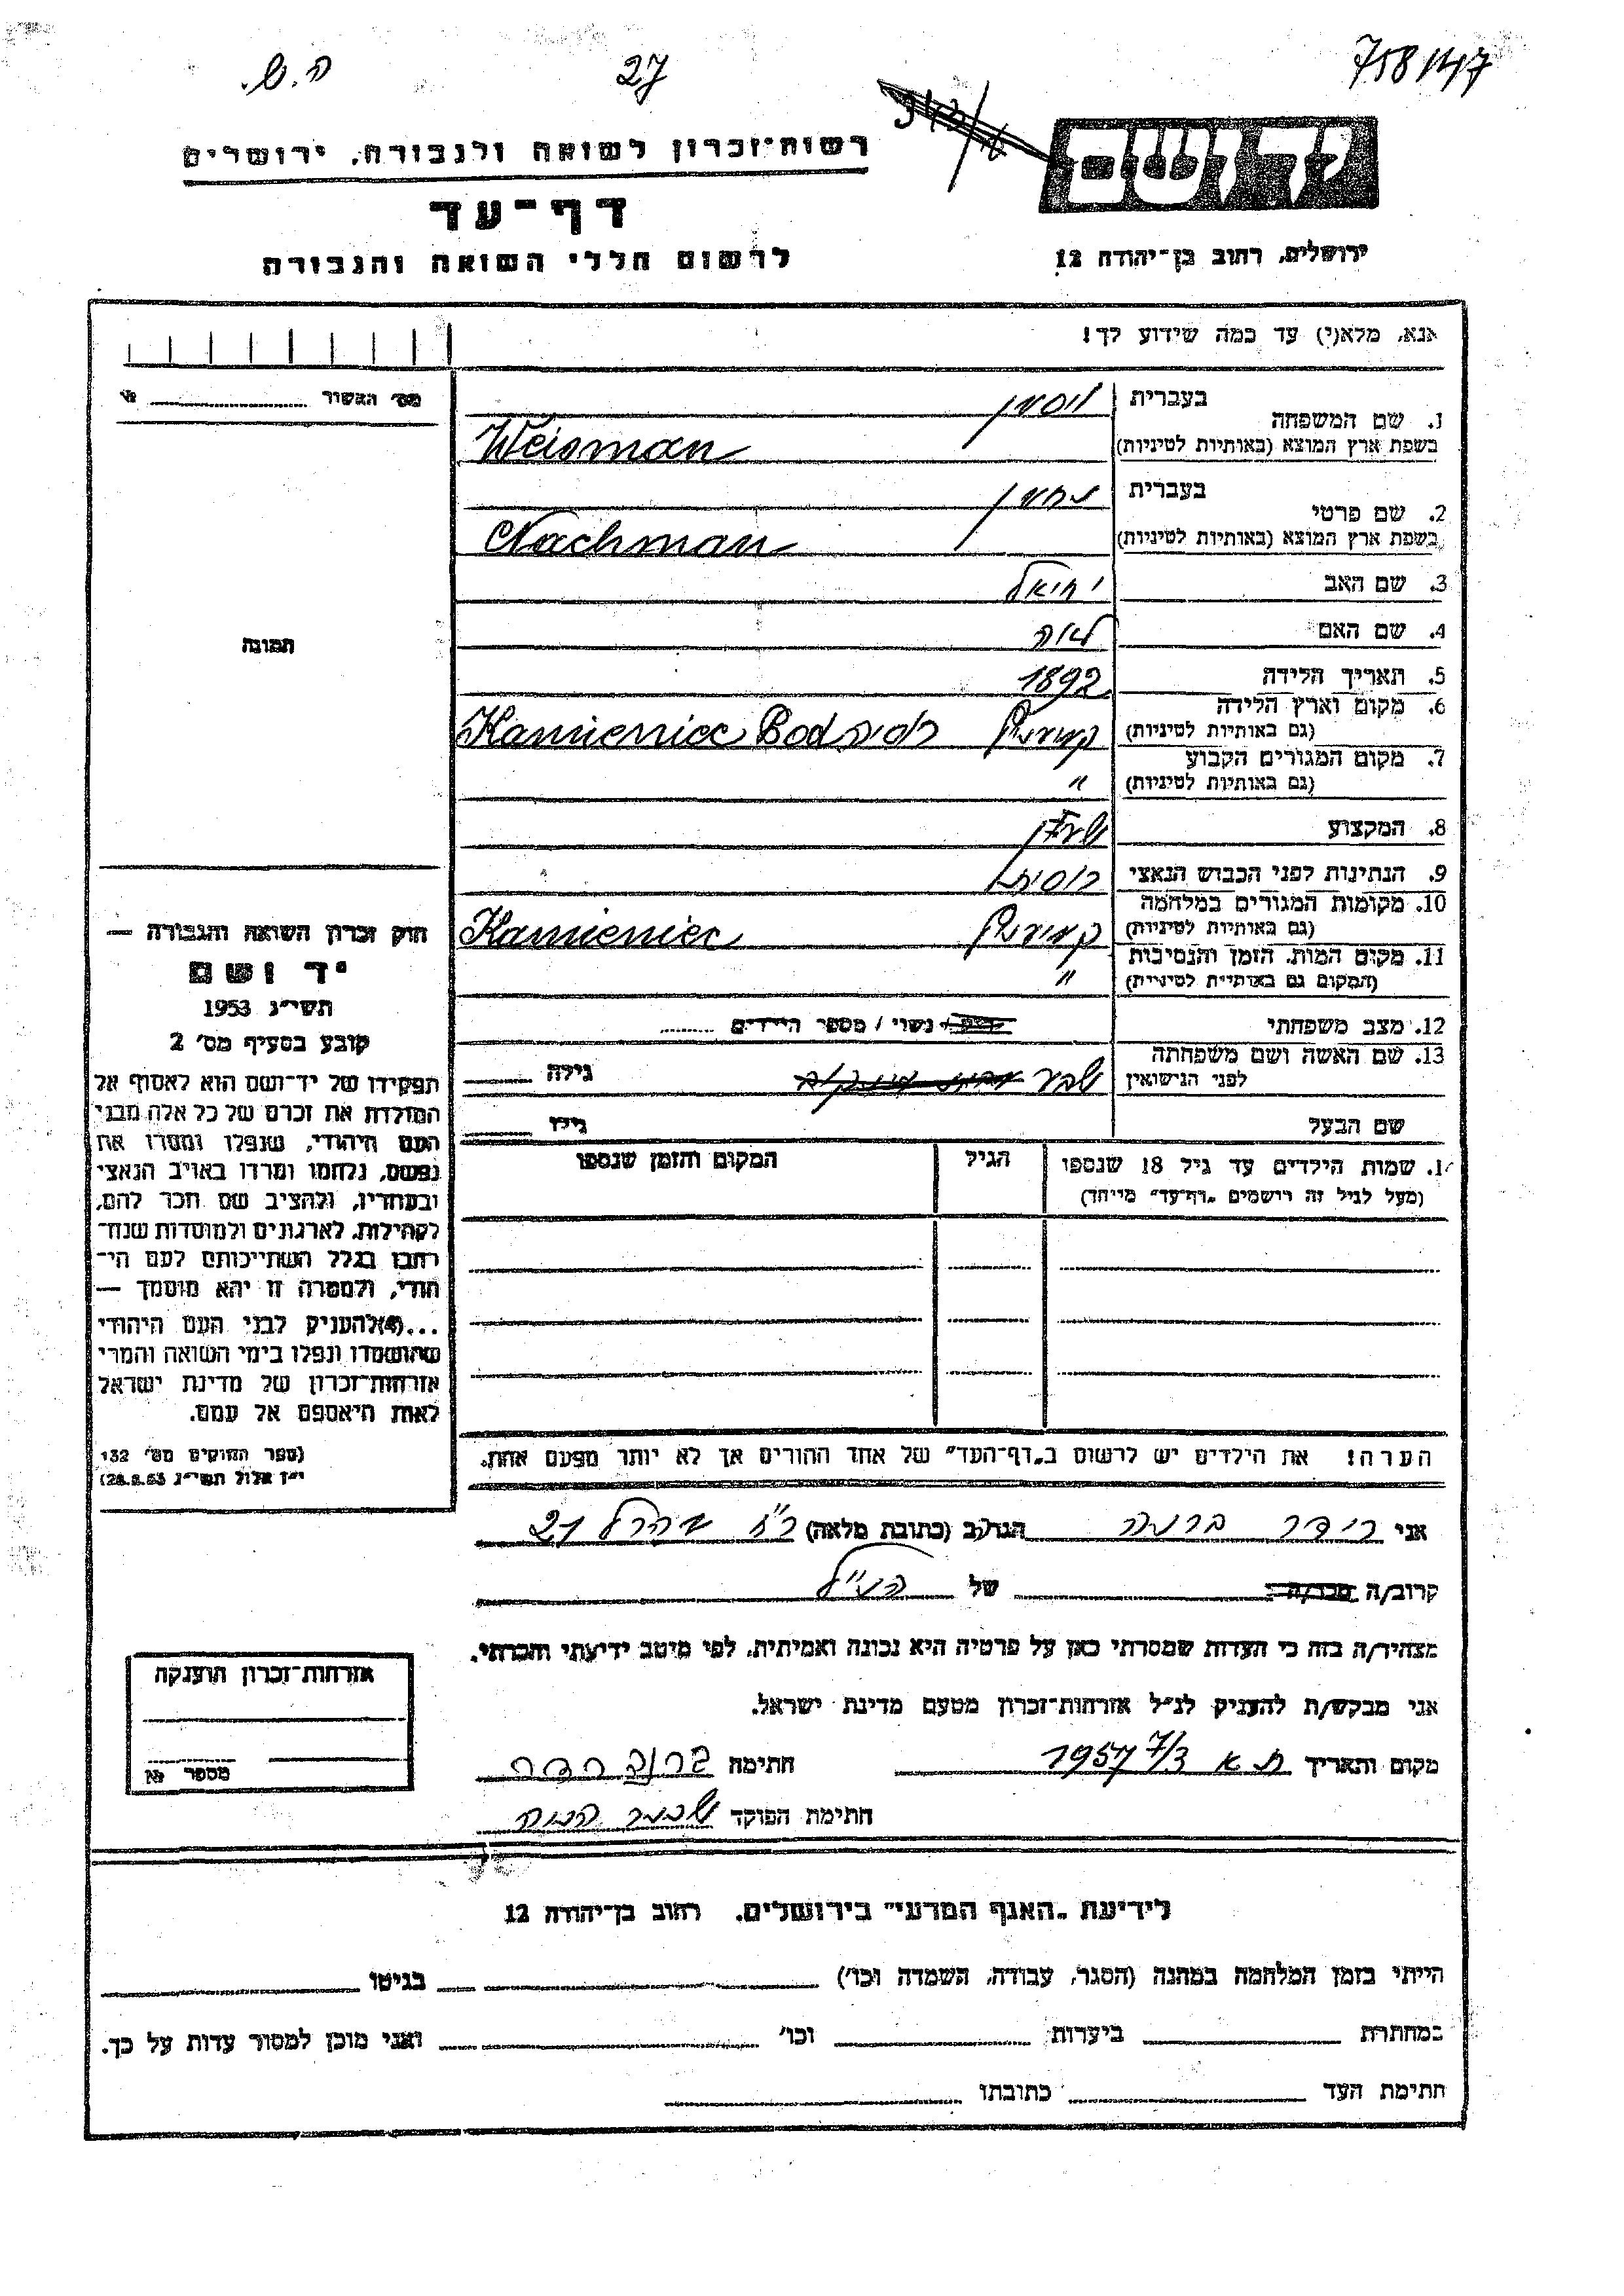 758147
27
ה.ש.
יד ושם
רשות־זכרון לשואה ולגבורה, ירושלים
דף־עד
לרשום חללי השואה והגבורה
ירושלים, רחוב בן־יהודה 12
אנא, מלא(י) עד כמה שידוע לך!
מס׳ האשור №
1. שם המשפחה בעברית ויסמן
בשפת ארץ המוצא (באותיות לטיניות) Weisman
2. שם פרטי בעברית נחמן
בשפת ארץ המוצא (באותיות לטיניות) Nachman
3. שם האב יחיאל
4. שם האם לאה
5. תאריך הלידה 1892
6. מקום וארץ הלידה
(גם באותיות לטיניות) קמיניץ רוסיה Kamieniec Pod
7. מקום המגורים הקבוע
(גם באותיות לטיניות) "
8. המקצוע
9. הנתינות לפני הכבוש הנאצי רוסית
10. מקומות המגורים במלחמה
(גם באותיות לטיניות) קמיניץ Kamieniec
11. מקום המות, הזמן והנסיבות
(המקום גם באותיות לטיניות) "
12. מצב משפחתי רווק / נשוי / מספר הילדים
13. שם האשה ושם משפחתה
לפני הנישואין שבע גילה
שם הבעל גילו
תמונה
חוק זכרון השואה והגבורה —
יד ושם
תשי״ג 1953
קובע בסעיף מס׳ 2
תפקידו של יד־ושם הוא לאסוף אל
המולדת את זכרם של כל אלה מבני
העם היהודי, שנפלו ומסרו את
נפשם, נלחמו ומרדו באויב הנאצי
ובעוזריו, ולהציב שם וזכר להם,
לקהילות, לארגונים ולמוסדות שנח־
רבו בגלל השתייכותם לעם הי־
הודי, ולמטרה זו יהא מוסמך —
...(4)להעניק לבני העם היהודי
שהושמדו ונפלו בימי השואה והמרי
אזרחות־זכרון של מדינת ישראל
לאות היאספם אל עמם.
(ספר החוקים מס׳ 132
י״ז אלול תשי״ג 28.8.53)
14. שמות הילדים עד גיל 18 שנספו הגיל המקום והזמן שנספו
(מעל לגיל זה רושמים „דף־עד״ מיוחד)
הערה! את הילדים יש לרשום ב„דף־העד״ של אחד ההורים אך לא יותר מפעם אחת.
אני רידר ברטה הגר/ב (כתובת מלאה) רח׳ 21
קרוב/ה מכר/ה של הנ״ל
מצהיר/ה בזה כי העדות שמסרתי כאן על פרטיה היא נכונה ואמיתית, לפי מיטב ידיעתי והכרתי.
אני מבקש/ת להעניק לנ״ל אזרחות־זכרון מטעם מדינת ישראל.
מקום ותאריך ת א 7/3 1957 חתימה
חתימת הפוקד
אזרחות־זכרון הוענקה
מספר №
לידיעת „האגף המדעי״ בירושלים, רחוב בן־יהודה 12
הייתי בזמן המלחמה במחנה (הסגר, עבודה, השמדה וכו׳) בגיטו
במחתרת ביערות וכו׳ ואני מוכן למסור עדות על כך.
חתימת העד כתובתו